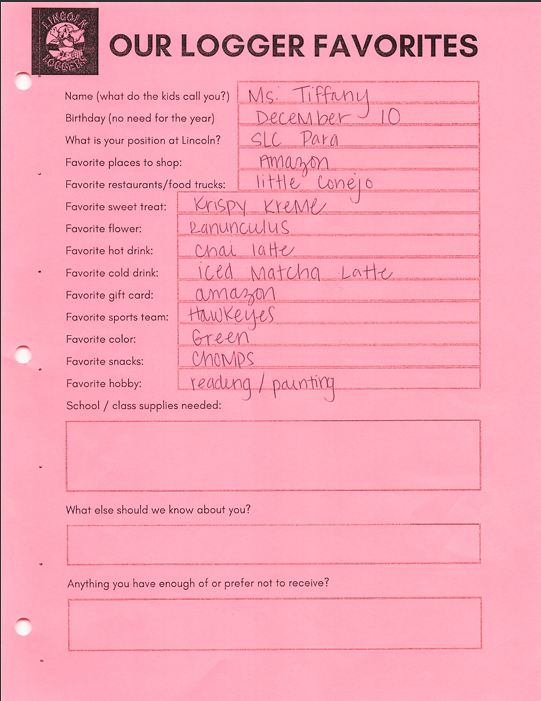 LINCOLN
LOGGERS
OUR LOGGER FAVORITES
Name (what do the kids call you?) Ms. Tiffany
Birthday (no need for the year) December 10
What is your position at Lincoln? SLC Para
Favorite places to shop: Amazon
Favorite restaurants/food trucks: little Conejo
Favorite sweet treat: Krispy Kreme
Favorite flower: Ranunculus
Favorite hot drink: Chai latte
Favorite cold drink: iced Matcha Latte
Favorite gift card: amazon
Favorite sports team: Hawkeyes
Favorite color: Green
Favorite snacks: CHOMPS
Favorite hobby: reading / painting
School / class supplies needed:
What else should we know about you?
Anything you have enough of or prefer not to receive?